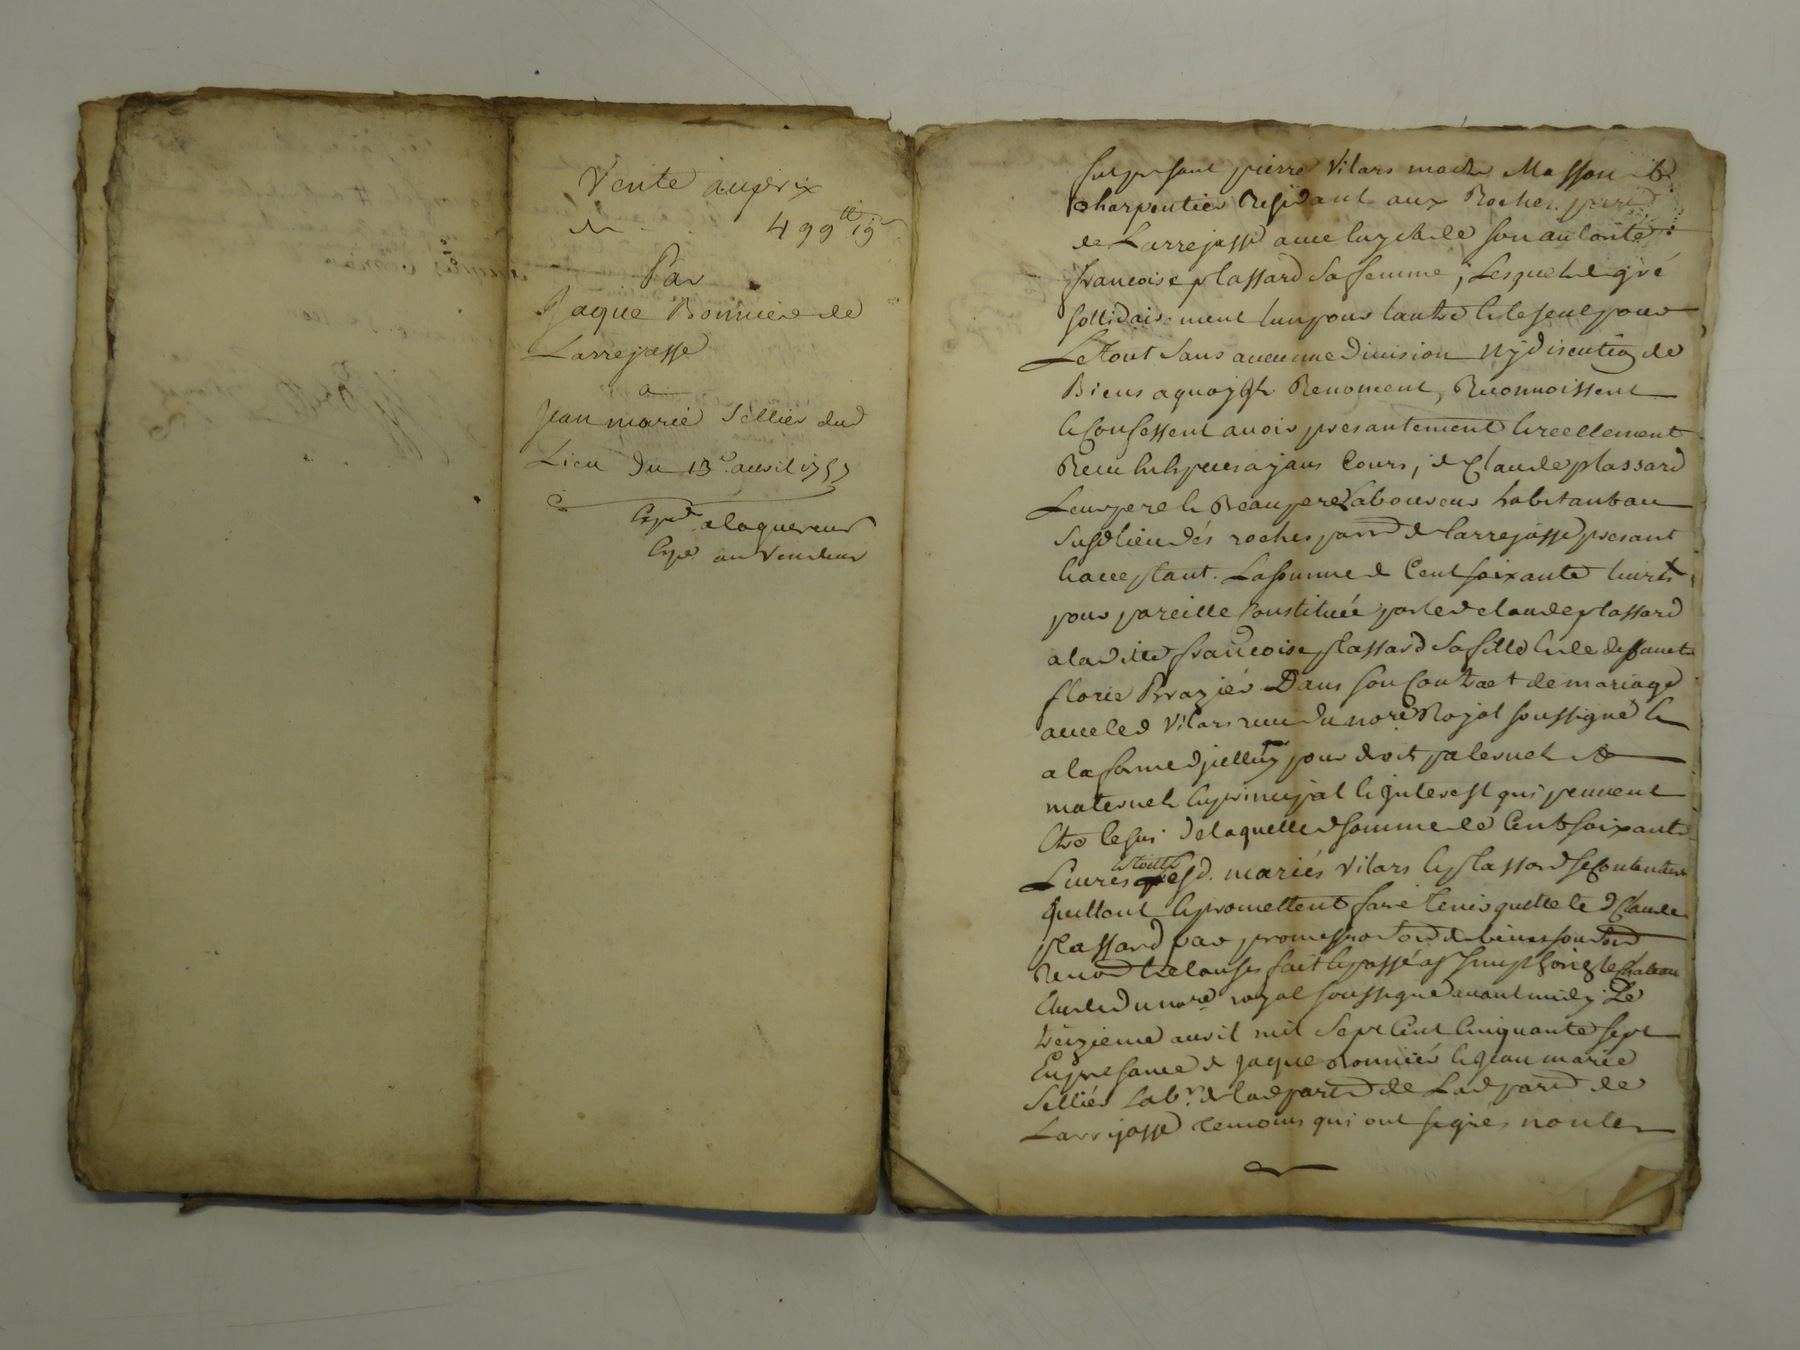 Vente au prix
de 499tt 19s
Par
Jaque Bonnier de
Larrejasse
a
Jean marie Sellier dud
Lieu Du 13e avril 1757
Expd a laquereur
Expd au vendeur
fut present pierre Vilars maitre Masson &
charpentier Residant aux Roches parr
de Larrejasse avec luy & de son autorité
francoise plassard sa femme, Lesquels de gré
sollidairement lun pour lautre & le seul pour
Le tout sans aucunne division ny discution de
Biens a quoy Renoncent, Reconnoissent
& Confessent avoir presantement & reellement
Receu en especes ajans Cours, de Claude plassard
Leur pere & Beaupere Laboureur habitant au
susd lieu dés roches parr de larrejasse presant
& acceptant. La somme de Cent soixante livres
pour pareille Constituée par led claude plassard
a la ditte francoise plassard sa fille & de deffuncte
florie Brazier Dans son Contract de mariage
avec led Vilars receu du nore Royal soussigné &
a la forme dicelluy pour droit paternel &
maternel en principal & Interest qui peuvent
Etre de laquelle d somme de Cent soixante
Livres lesd. mariés Vilars & plassard se Contentent
quittent & promettent faire tenir quitte le d Claude
plassard par promesse
Renon & clauses fait & passé a St Simphorien le Chateau
Etude du nore royal soussigné avant midy Le
treizieme avril mil sept Cent Cinquante sept
En presance de Jaque Bonnier & Jean marie
Sellier Labr de lad parr de Lad parr de
Larrejasse temoins qui ont signés non les